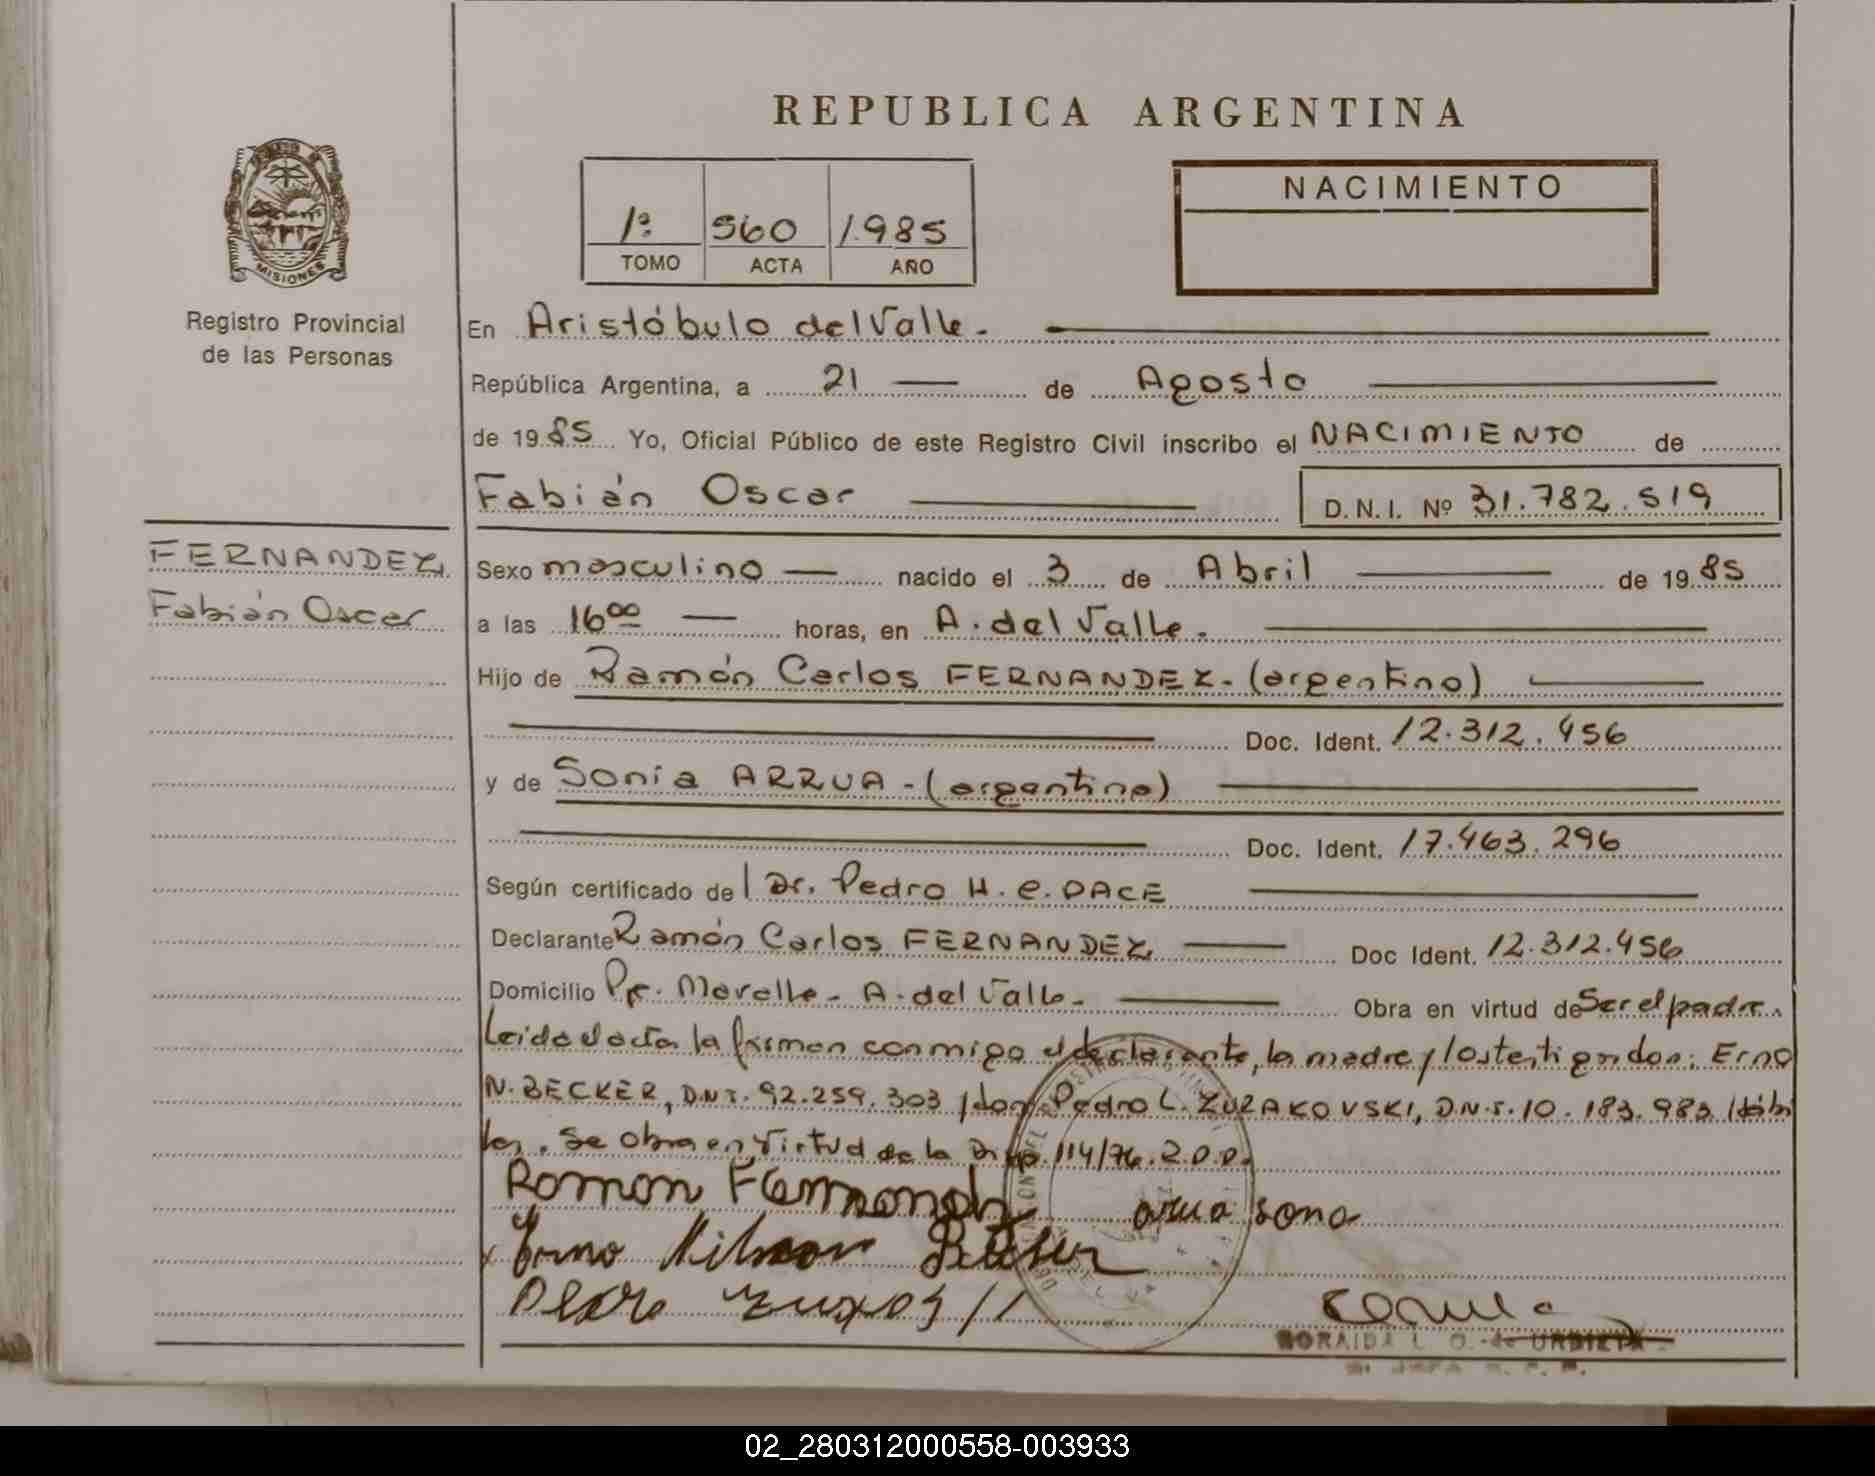 REPUBLICA ARGENTINA
MISIONES
Registro Provincial
de las Personas
1º 560 1.985
TOMO ACTA AÑO
NACIMIENTO
En Aristóbulo del Valle.
República Argentina, a 21 de Agosto
de 19 85 Yo, Oficial Público de este Registro Civil inscribo el NACIMIENTO de
Fabián Oscar D.N.I. Nº 31.782.519
FERNANDEZ,
Fabián Oscar
Sexo masculino nacido el 3 de Abril de 19 85
a las 16 00 horas, en A. del Valle.
Hijo de Ramón Carlos FERNANDEZ.- (argentino)
Doc. Ident. 12.312.456
y de Sonia ARRUA - (argentina)
Doc. Ident. 17.463.296
Según certificado del Dr. Pedro H. C. PACE
Declarante Ramón Carlos FERNANDEZ, Doc Ident. 12.312.456
Domicilio Pje. Marelle - A. del Valle - Obra en virtud de Ser el padre.
Leida el acta, la firman conmigo el declarante, la madre y los testigos don: Erno
N. BECKER, D.N.I. 92.259.303 y don Pedro L. ZURAKOVSKI, D.N.I. 10.183.983 /hábi
les. Se obra en virtud de la Disp. 114/76.
Ramon Fernandez arua sona
Erno Nilson Becker
Pedro
ZORAIDA L. O. de URBIETA
02_280312000558-003933